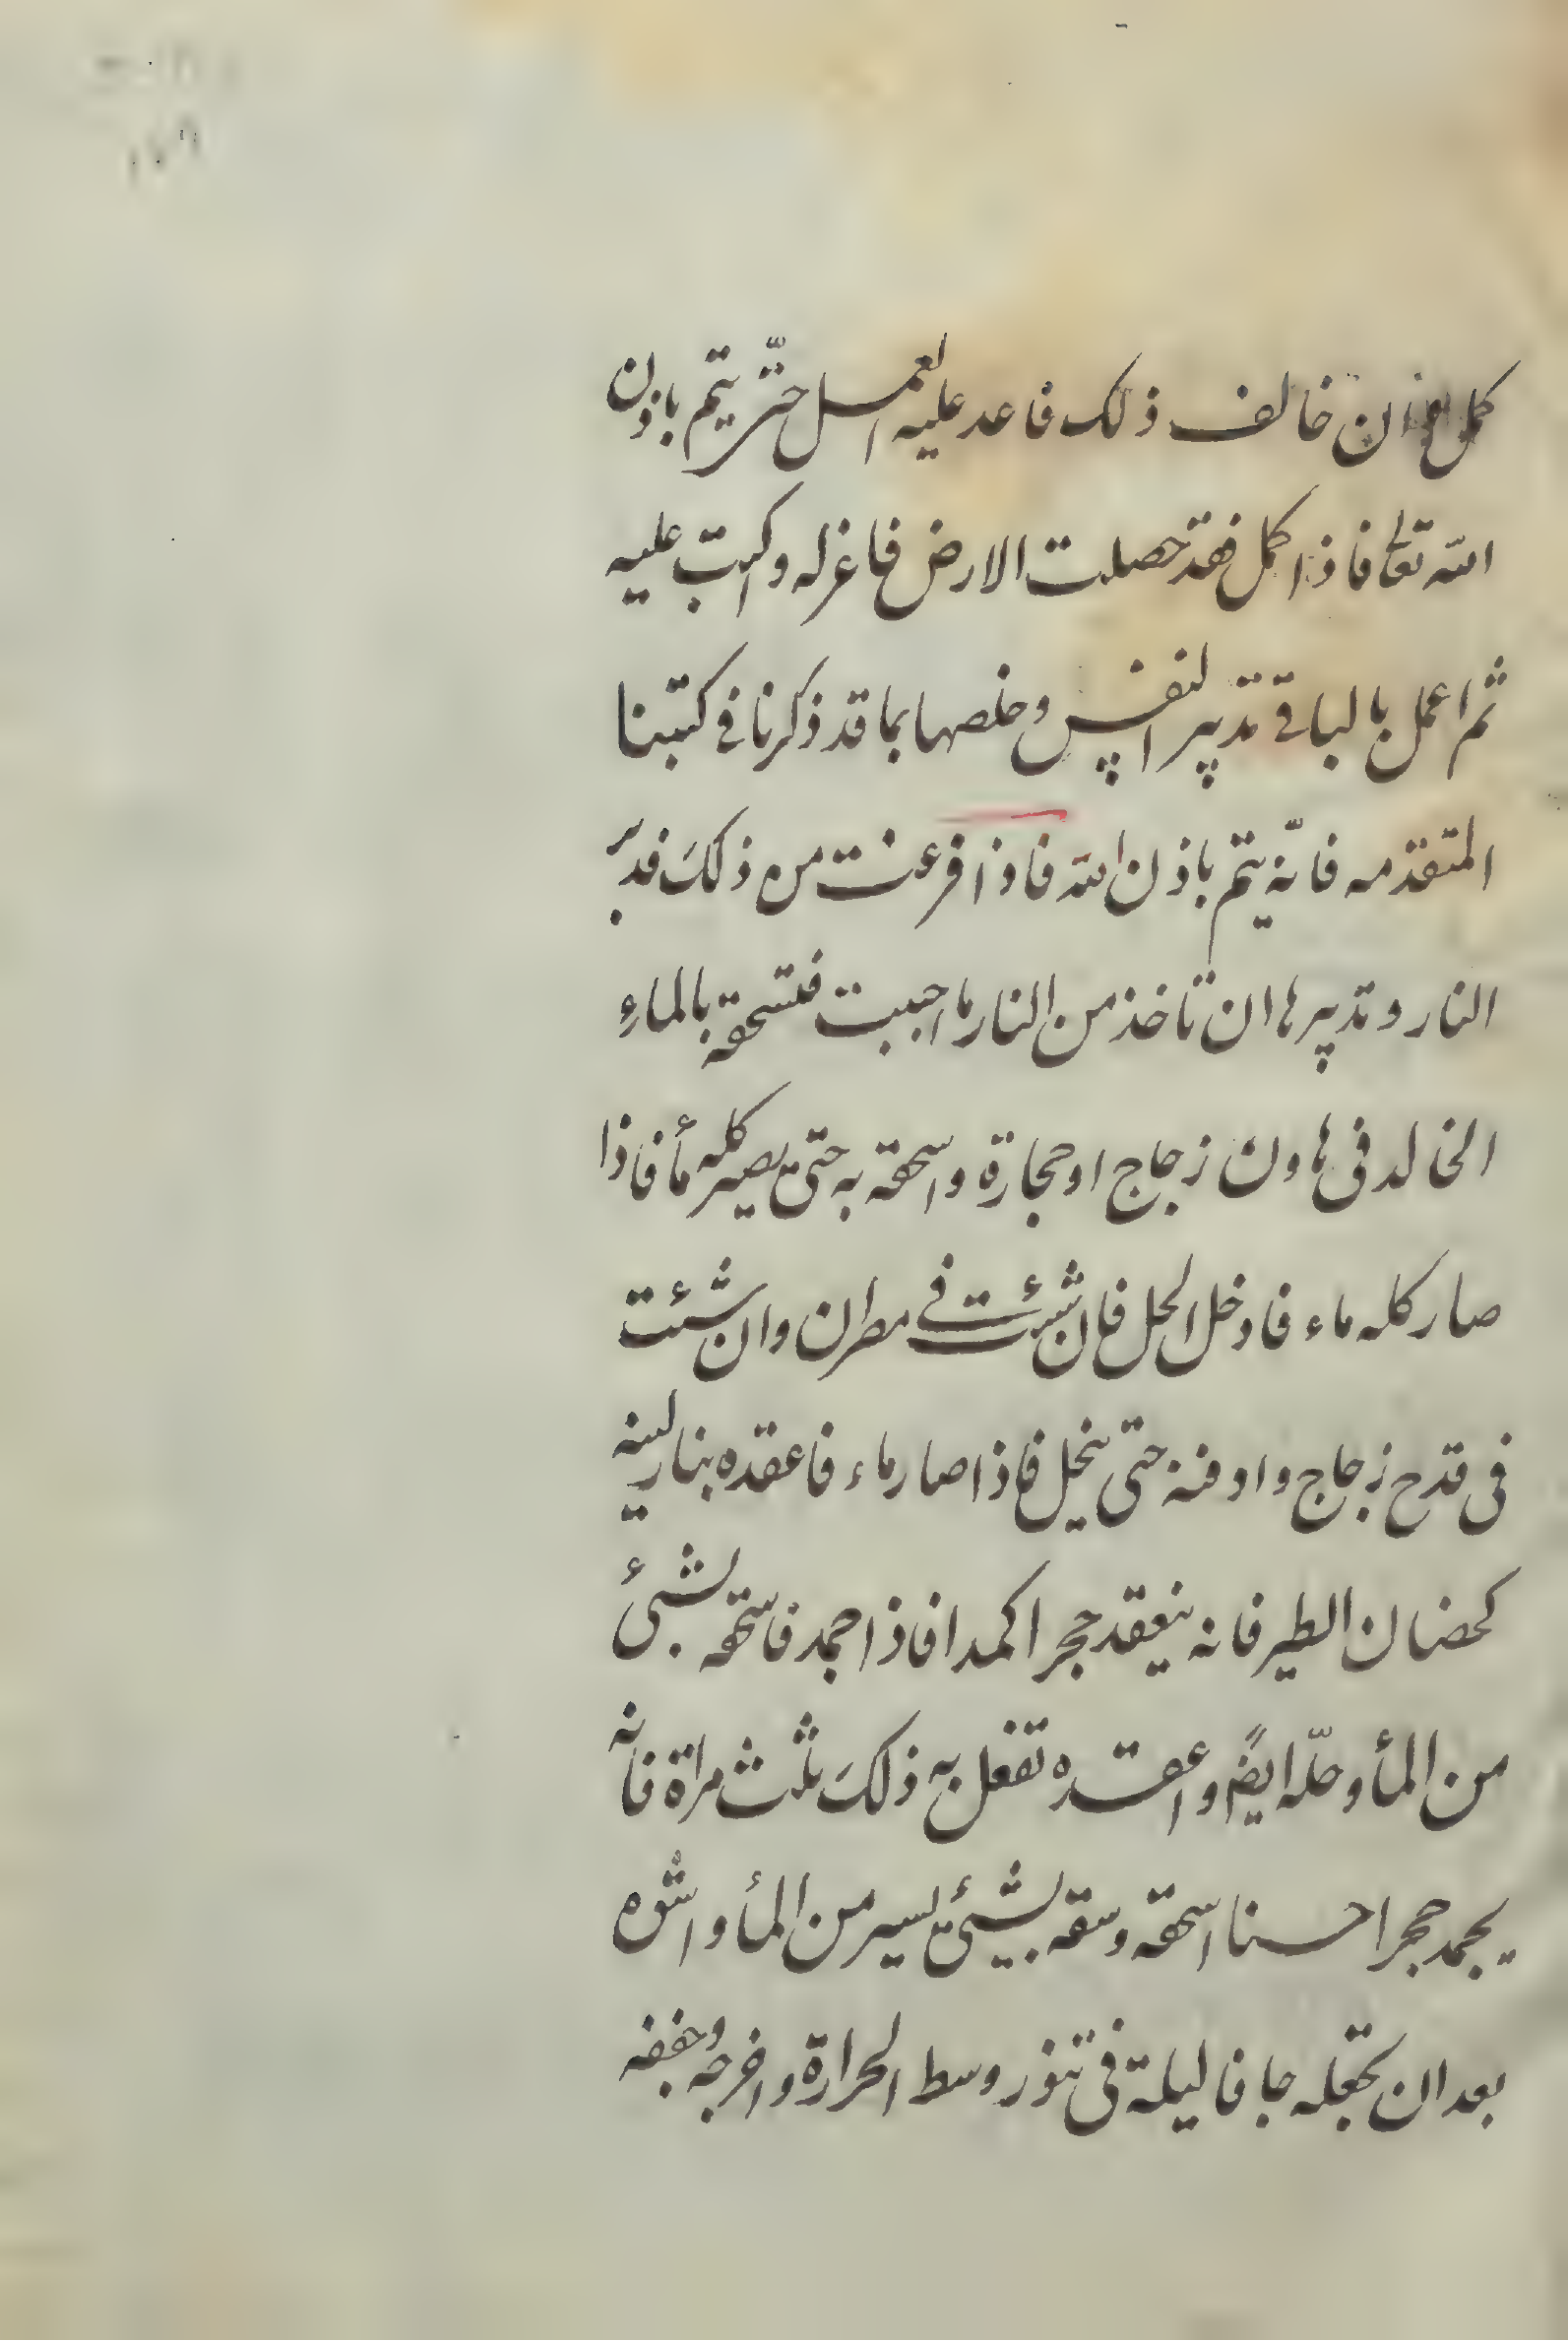 كمل وان خالف ذلك فاعد عليه العمل حتّى يتم باذن
الله تعالى فاذا كمل فقد حصلت الارض فاعزله واكتب عليه
ثم اعمل بالباقي تدبير النفس وخلصها بما قد ذكرنا في كتبنا
المتقدّمه فانّه يتم باذن الله فاذا فرغت من ذلكَ فدبّر
النار وتدبيرها ان تاخذ من النار ما احببت فتسحقه بالماءِ
الخالد فى هاون زجاج او حجارة واسحقه به حتى يصير كله مأ فاذا
صار كله ماء فادخل الحل فان شئت في مطران وان شئت
فى قدح زجاج وادفنه حتى ينحل فاذا صار ماء فاعقده بنار لينه
كحضان الطير فانه ينعقد حجرا كمدا فاذا جمد فاسحقه بشئ
من المأ وحلّه ايضًا واعقده تفعل به ذلكَ ثلث مراة فانه
يجمد حجرا حسنا اسحقه وسقه بشئ يسير من المأ واشوه
بعد ان تجعله جافا ليلة فى تنور وسط الحرارة واخرجه وجففه